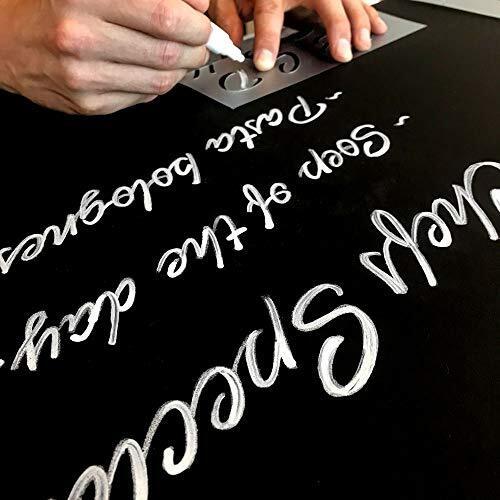 Chefs Specia
~ Soep of the day.
~ Pasta bolognes